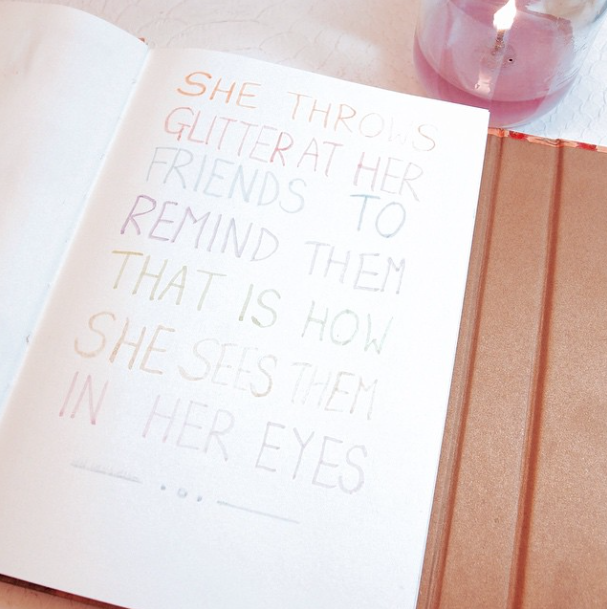 SHE THROWS
GLITTER AT HER
FRIENDS TO
REMIND THEM
THAT IS HOW
SHE SEES THEM
IN HER EYES